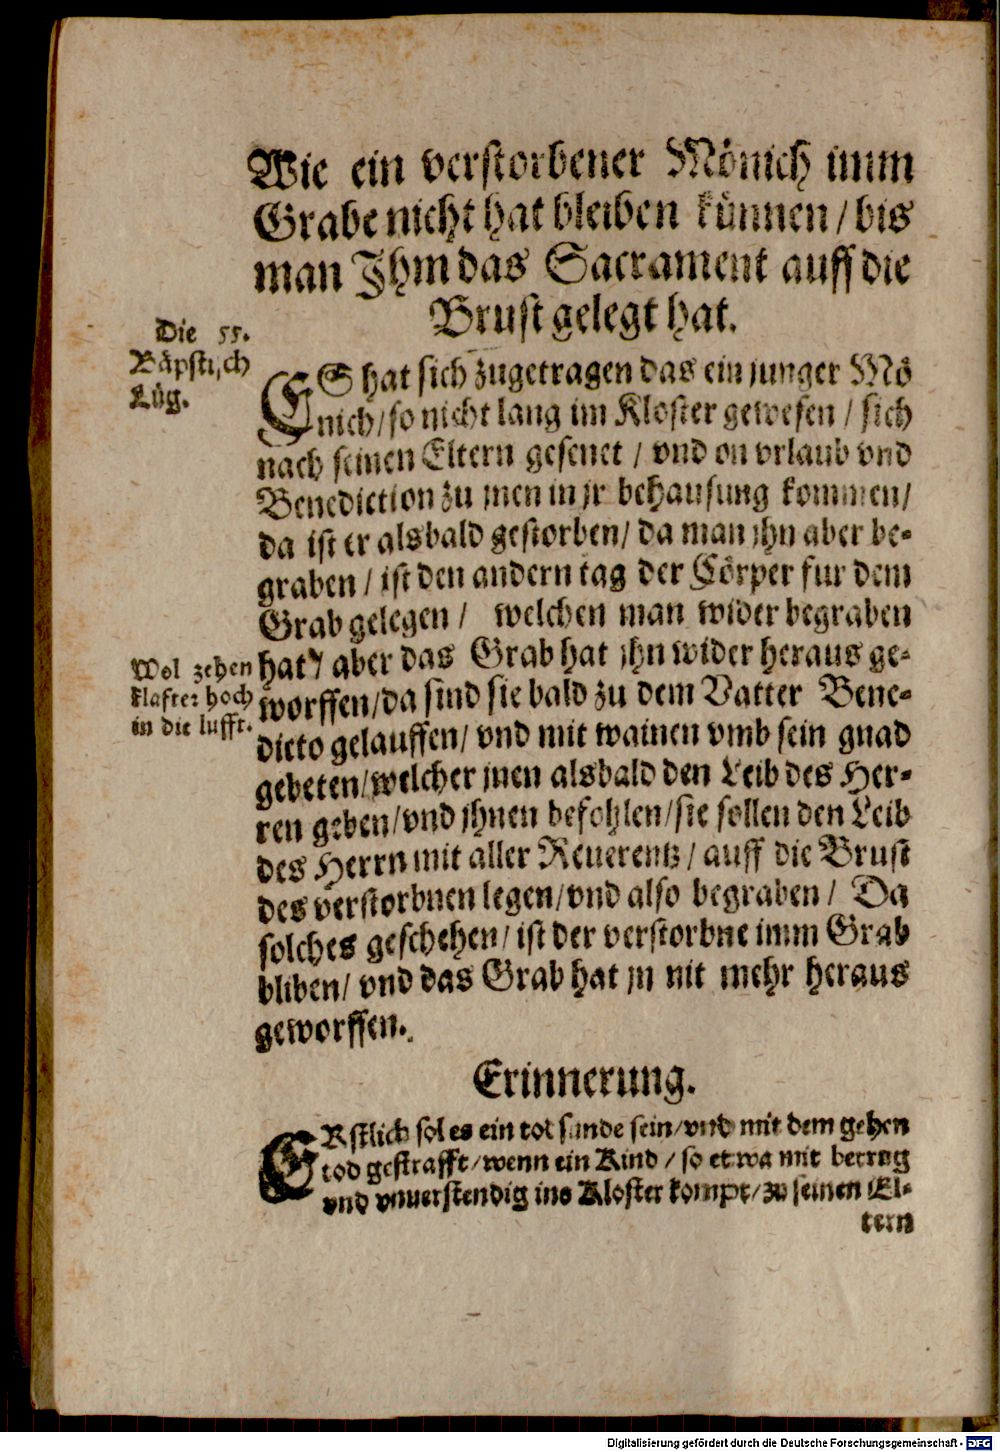 Wie ein verstorbener Mönich imm
Grabe nicht hat bleiben künnen / bis
man Jhm das Sacrament auff die
Brust gelegt hat.
Die 55.
Bäpstisch
Lüg.
ES hat sich zugetragen das ein junger Mö
nich / so nicht lang im Kloster gewesen / sich
nach seinen Eltern gesenet / vnd on vrlaub vnd
Benediction zu jnen in jr behausung kommen /
da ist er alsbald gestorben / da man jhn aber be-
graben / ist den andern tag der Cörper fur dem
Grab gelegen / welchen man wider begraben
hat / aber das Grab hat jhn wider heraus ge-
Wol zehen
klafter hoch
in die lufft.
worffen / da sind sie bald zu dem Vatter Bene-
dicto gelauffen / vnd mit wainen vmb sein gnad
gebeten / welcher jnen alsbald den Leib des Her-
ren geben / vnd jhnen befohlen / sie sollen den Leib
des Herrn mit aller Reuerentz / auff die Brust
des verstorbnen legen / vnd also begraben / Da
solches geschehen / ist der verstorbne imm Grab
bliben / vnd das Grab hat jn nit mehr heraus
geworffen.
Erinnerung.
ERstlich sol es ein tot sünde sein / vnd mit dem gehen
tod gestrafft / wenn ein Kind / so etwa mit betrug
vnd vnuerstendig ins Kloster kompt / zu seinen El-
tern
Digitalisierung gefördert durch die Deutsche Forschungsgemeinschaft - DFG